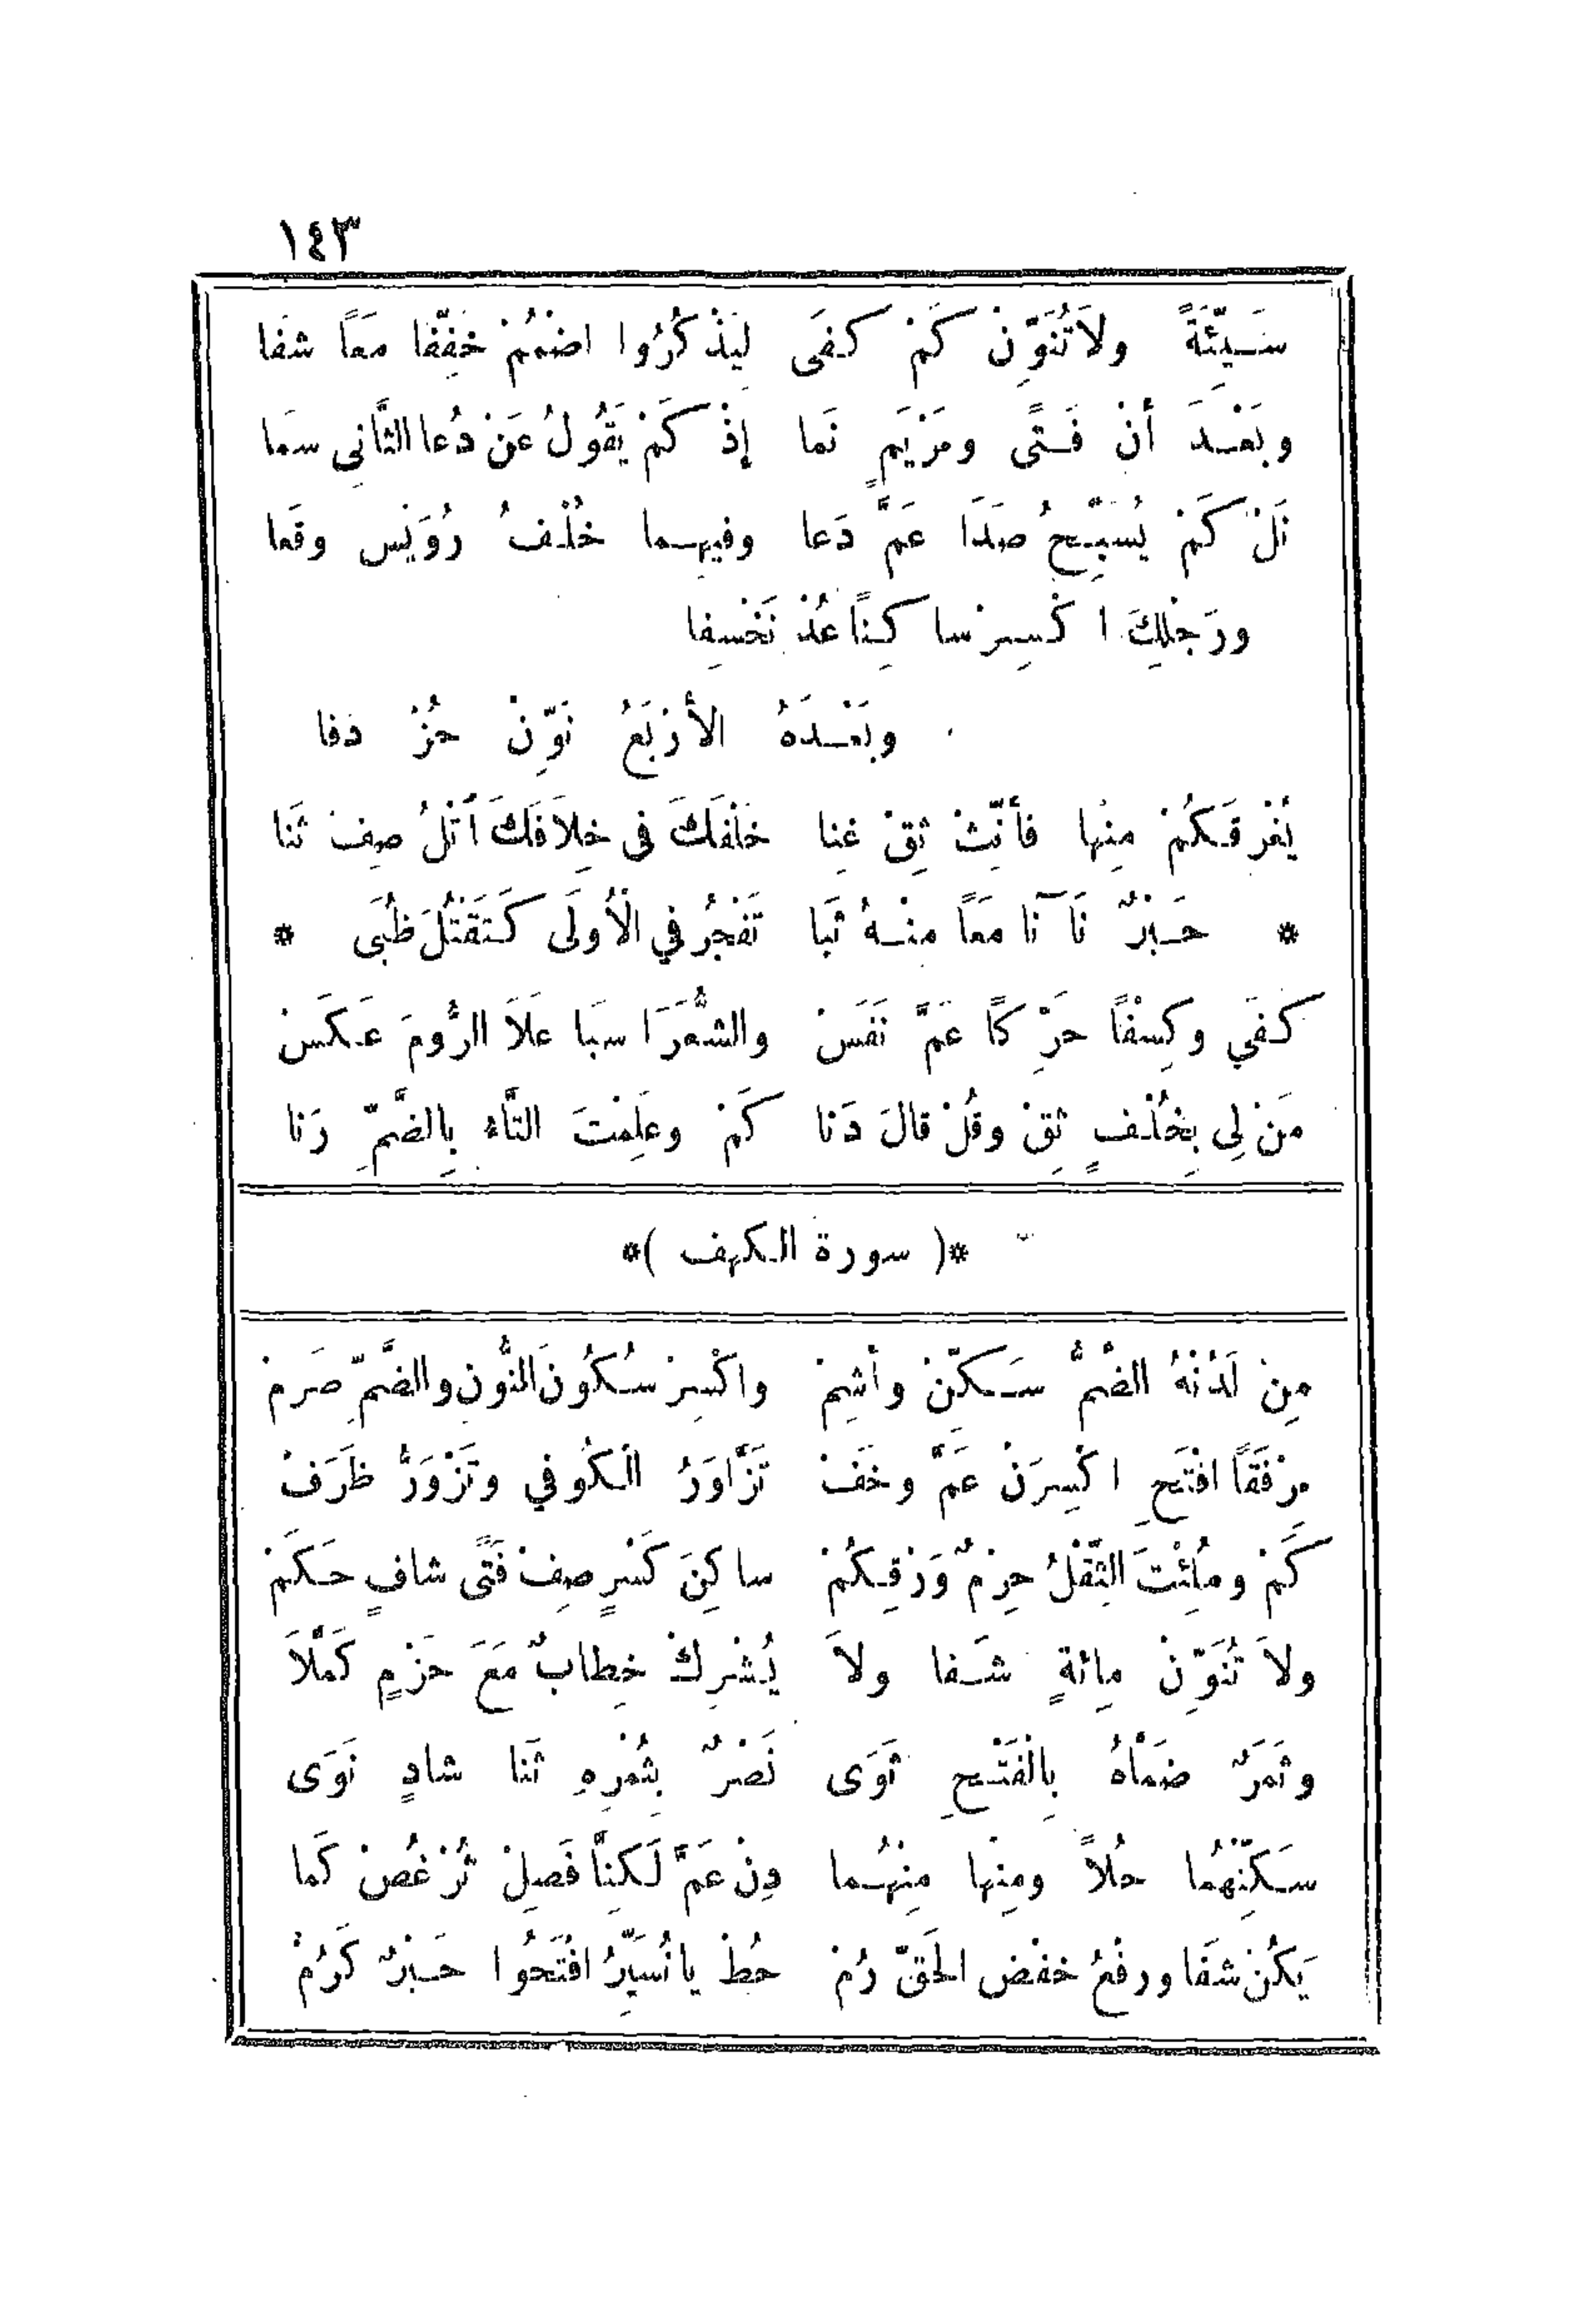 ١٤٣
سَيِّئَةً ولاَ تُنَوِّنْ كَمْ كَفَى لِيَذْكُرُوا اضْمُمْ خَفِّفَا مَعًا شَفَا
وبَعْدَ أنْ فَتًى ومَرْيَمٍ نَما إذْ كَمْ يَقُولُ عَنْ دُعا الثَّانِي سمَا
نَلْ كَمْ يُسَبِّحُ صَدَا عَمَّ دَعا وفيهما خُلْفُ رُوَيْسٍ وقَعا
ورَجْلِكَ اكْسِرْ ساكِنًا عُدْ نَخْسِفا
وبَعْدَهُ الأَرْبَعُ نَوِّنْ حُزْ دَفا
يُغْرِقَكُمْ مِنْها فأنِّثْ ثِقْ غِنا خَلْفَكَ فى خِلاَفَكَ أتْلُ صِفْ ثَنا
* حَبْرٌ نَآ نا مَعًا مِنْهُ ثَبا تَفْجُرَ في الْأُولَى كَتَقْتُلَ ظُبَى *
كَفَى وكِسْفًا حَرِّكًا عَمَّ نَفَسْ والشُّعَرَا سبَا عَلاَ الرُّومَ عَكَسْ
مَنْ لِي بِخُلْفٍ ثِقْ وقُلْ قالَ دَنا كَمْ وعَلِمْتَ التَّاءُ بِالضَّمِّ رَنا
*( سورة الكهف )*
مِنْ لَدْنِهِ الضَّمَّ سَكِّنْ وأشِمْ واكْسِرْ سُكُونَ النُّونِ والضَّمِّ صَرِمْ
مِرْفَقًا افْتَحِ اكْسِرَنْ عَمَّ وخَفْ تَزَّاوَرُ الْكُوفِي وتَزْوَرُّ ظَرَفْ
كَمْ ومُلِئْتَ الثِّقْلُ حِرْمٌ وَرْقِكُمْ ساكِنَ كَسْرٍ صِفْ فَتًى شافٍ حَكَمْ
ولاَ تُنَوِّنْ مِائَةٍ شَفا ولاَ يُشْرِكْ خِطابٌ مَعَ حَزْمٍ كَمَّلاَ
وثَمَرٌ ضَمَّاهُ بِالْفَتْحِ ثَوَى نَصْرٌ بِثُمْرِهِ ثَنا شادٍ نَوَى
سَكِّنْهُما حُلاً ومِنْها مِنْهُما دِنْ عَمَّ لَكِنَّا فَصِلْ ثُرْ غُصْ كَما
يَكُنْ شَفَا ورفْعُ خفْضِ الحَقِّ رُمْ حُطْ يا نُسَيِّرُ افْتَحُوا حَبْرٌ كَرُمْ